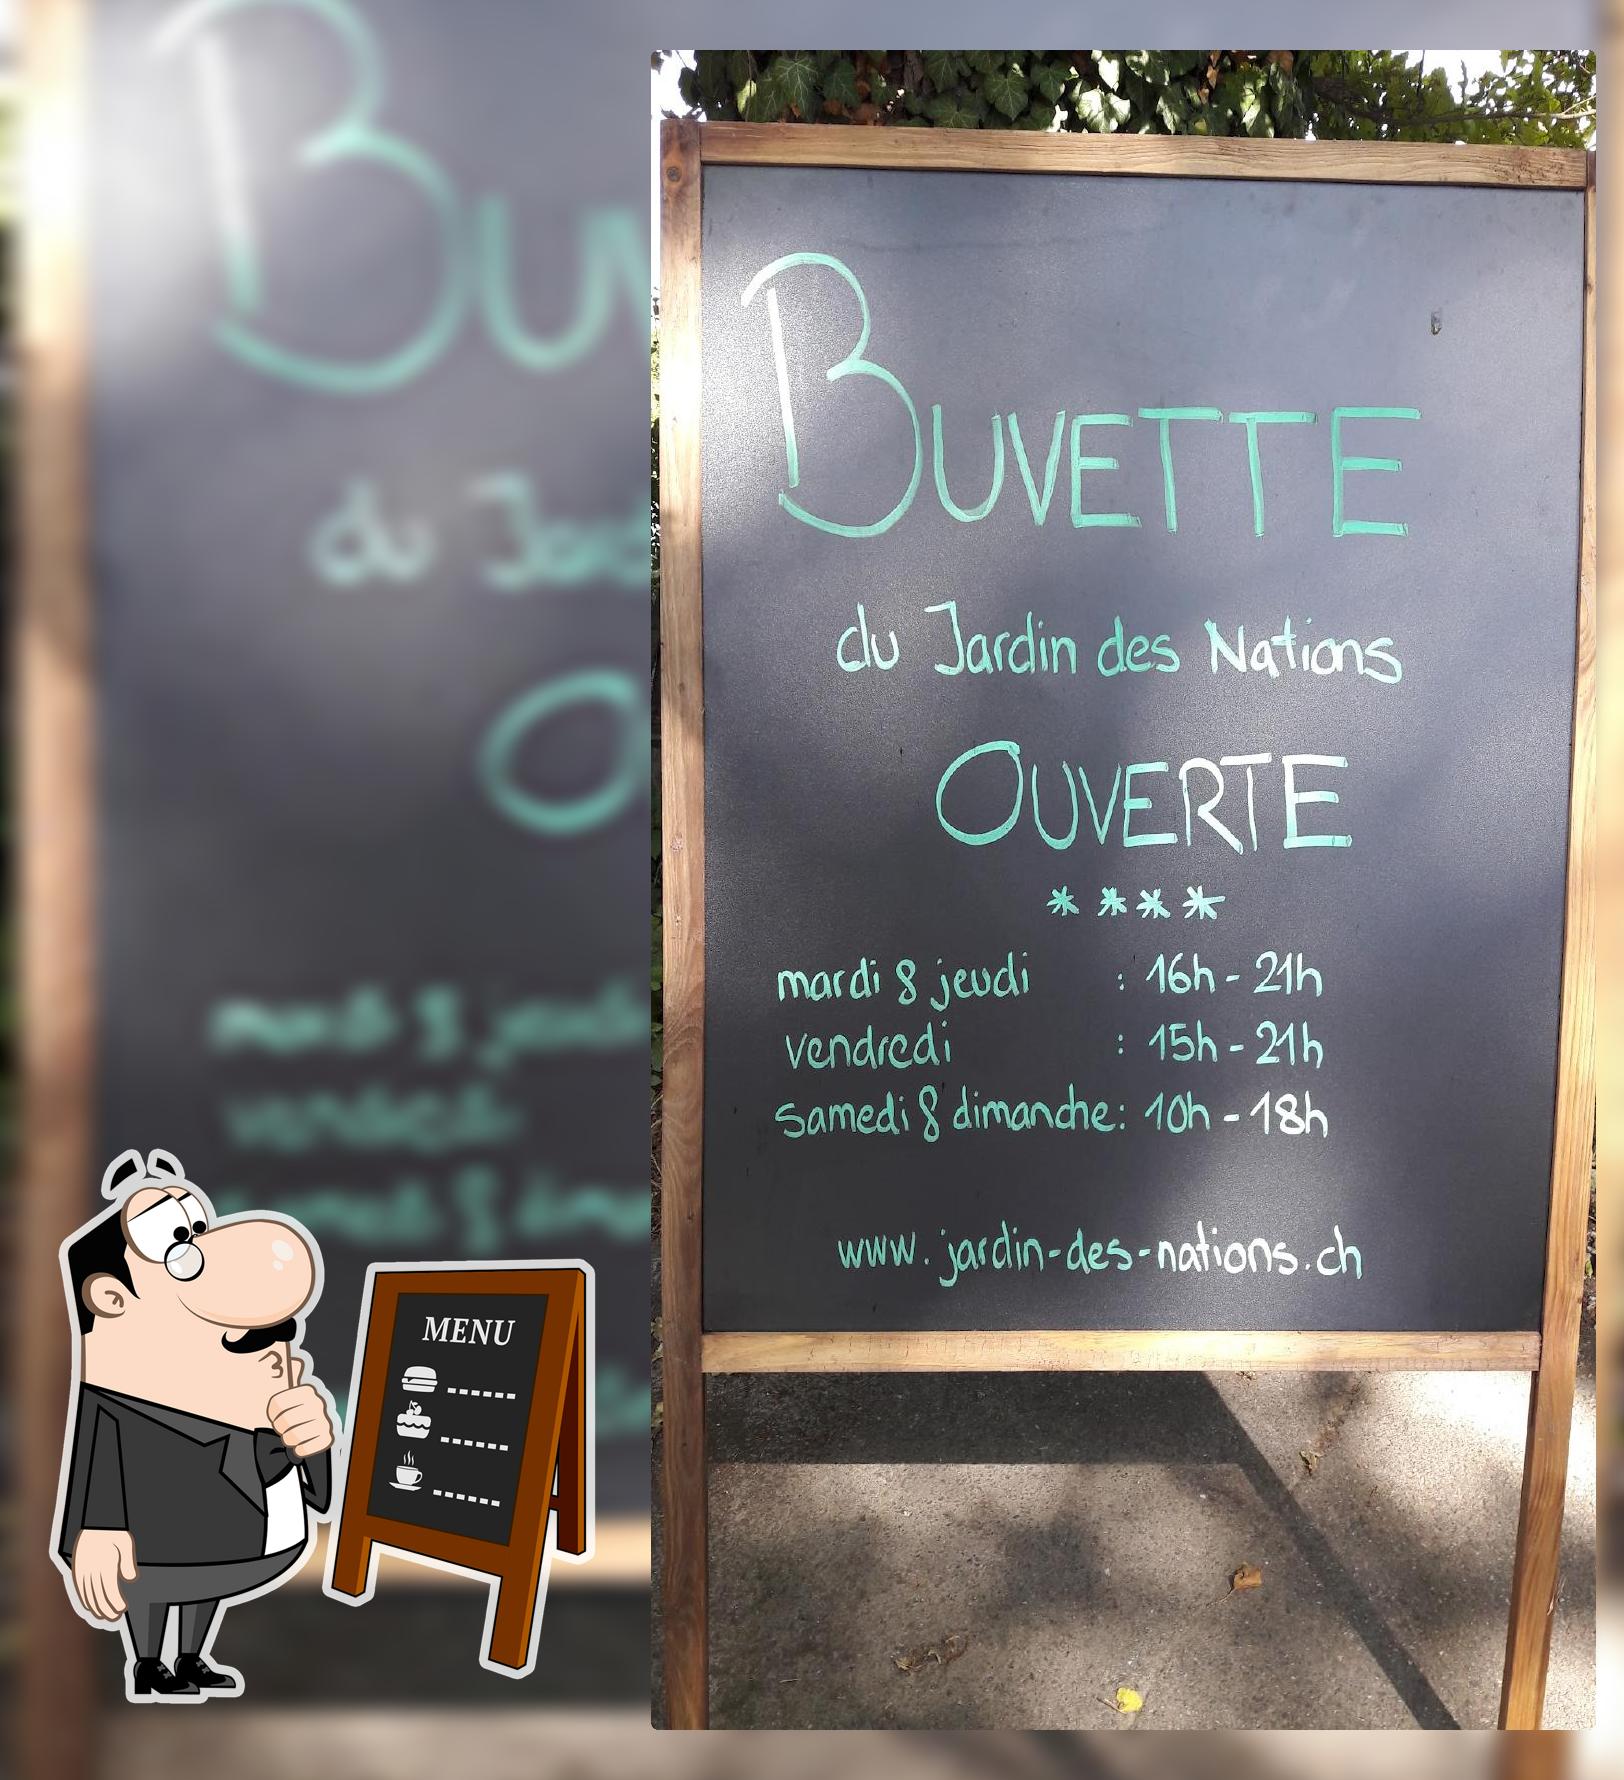 BUVETTE
du Jardin des Nations
OUVERTE
****
mardi & jeudi : 16h - 21h
vendredi : 15h - 21h
samedi & dimanche : 10h - 18h
www.jardin-des-nations.ch
MENU